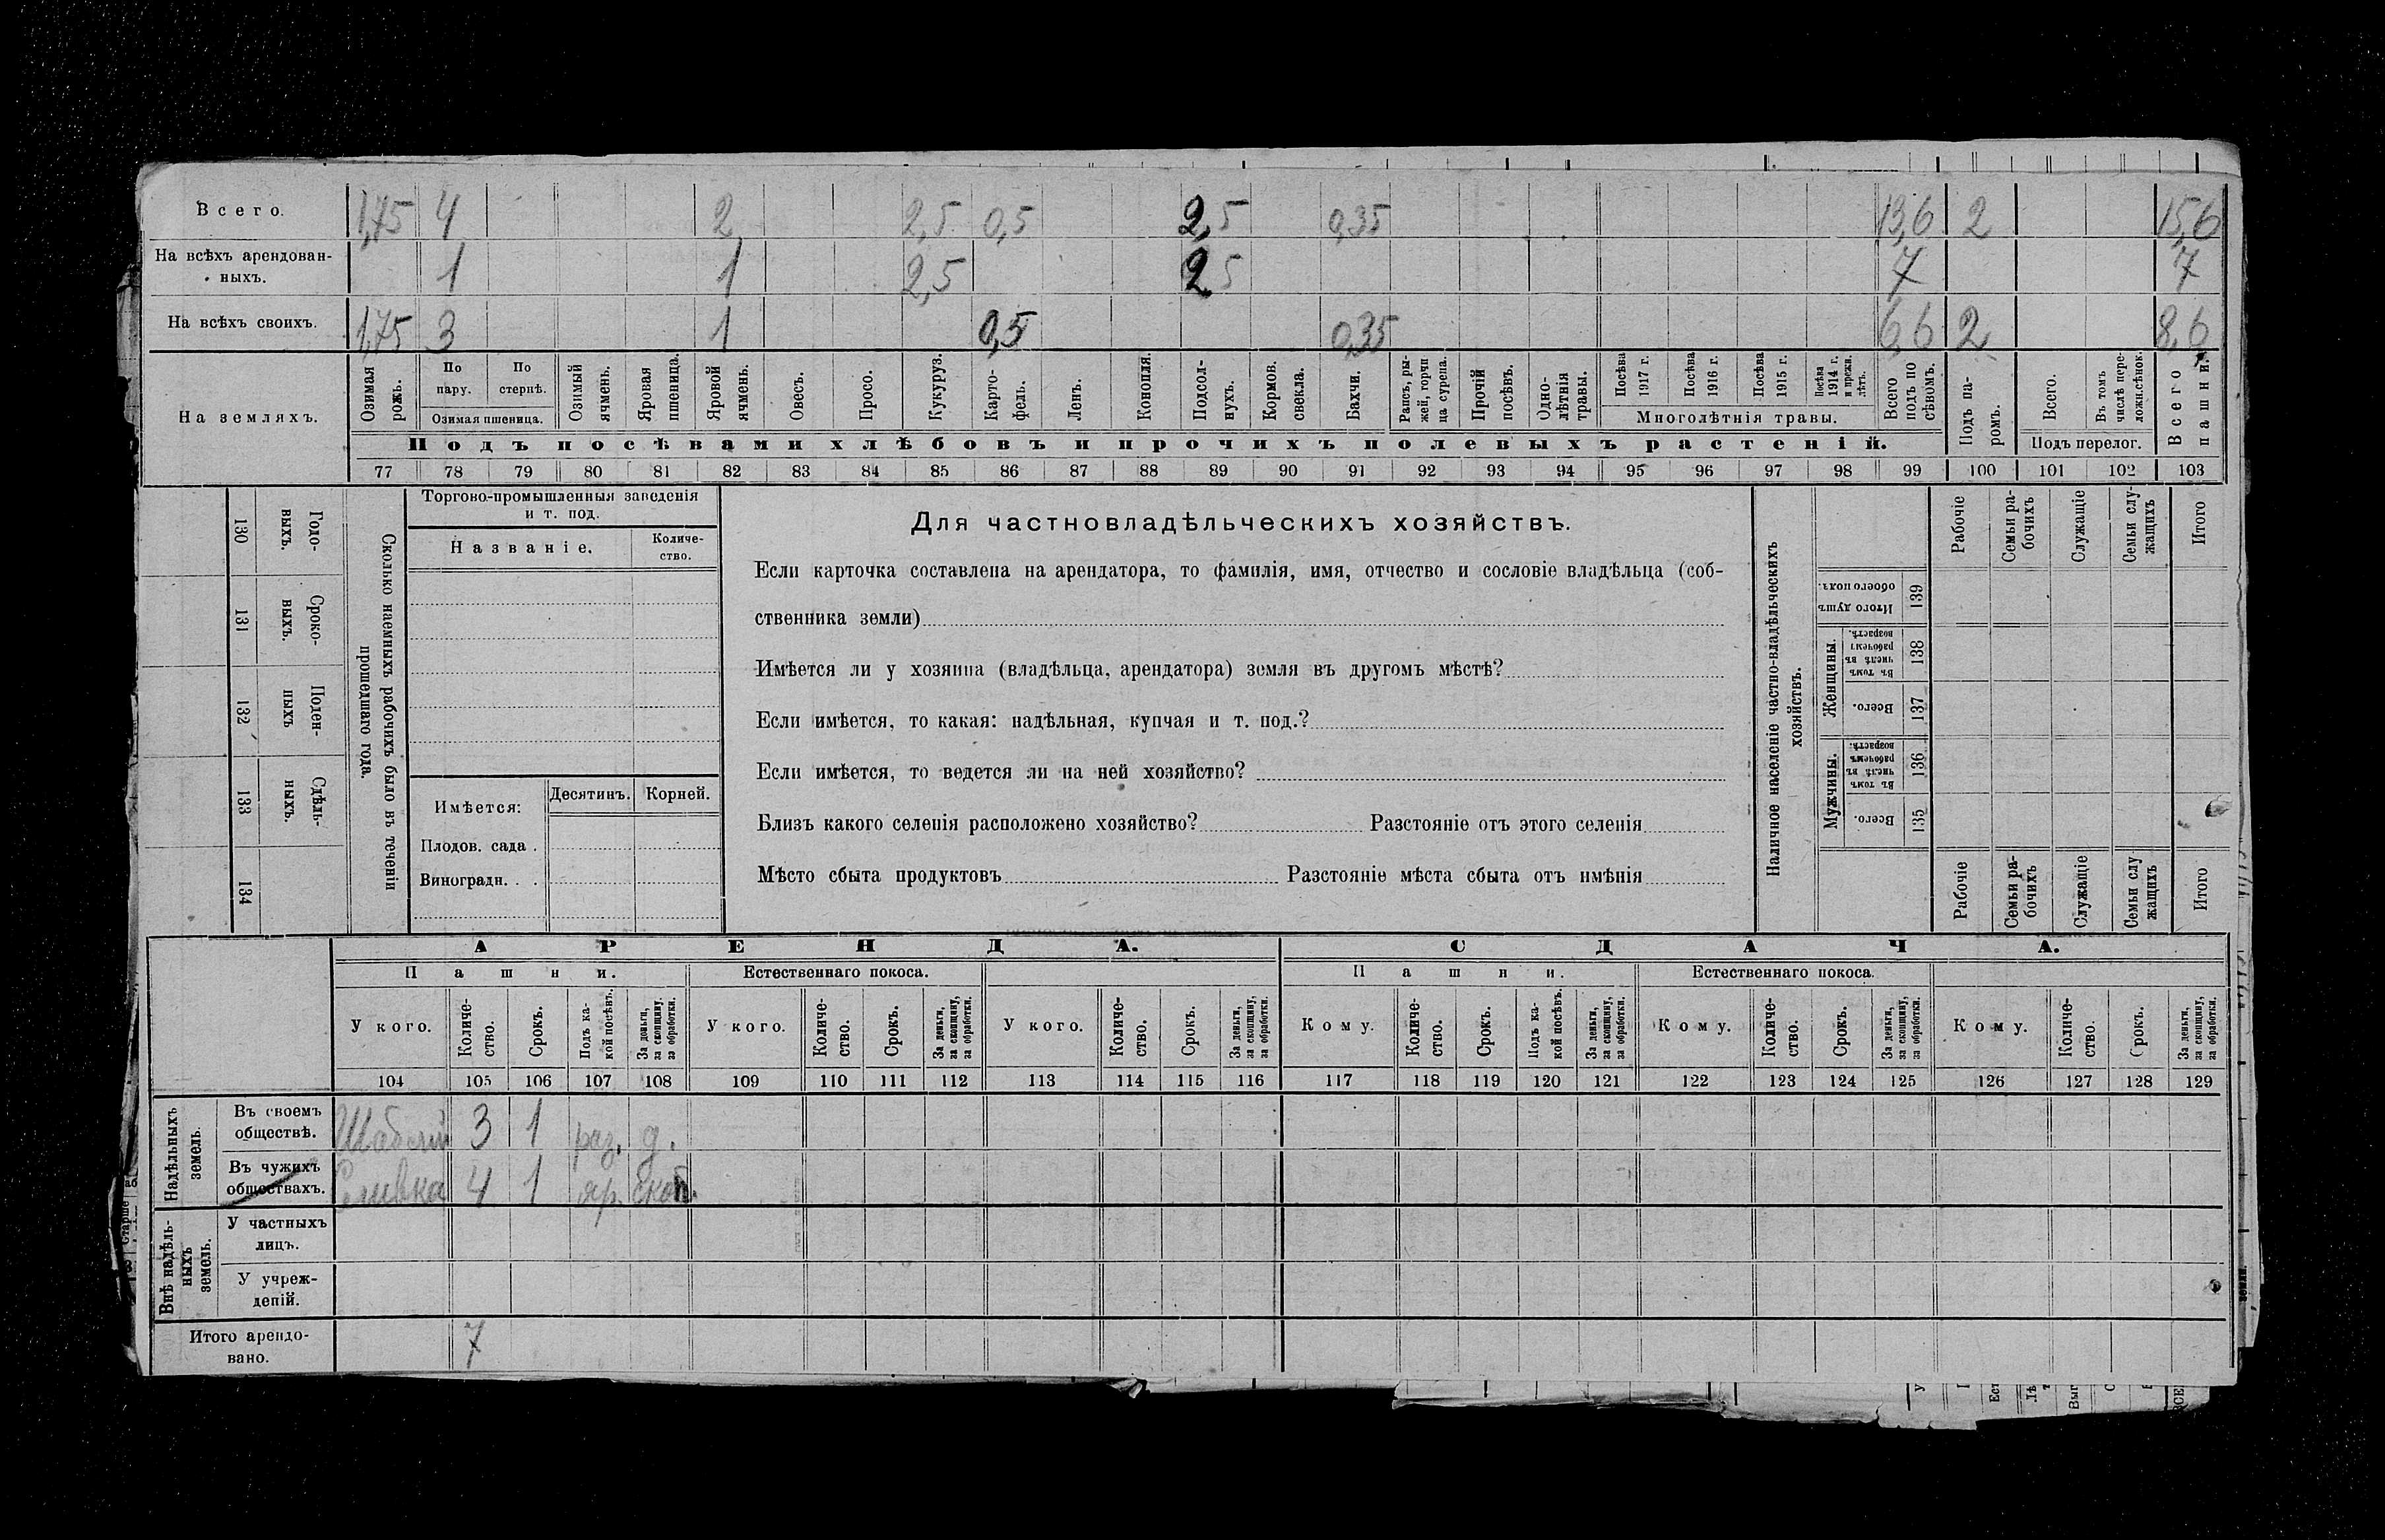 Всего. 1,75 4 2 2,5 0,5 2,5 0,35 13,6 2 15,6
На всѣхъ арендован-
ныхъ. 1 1 2,5 2 5 7 7
На всѣхъ своихъ. 1,75 3 1 0,5 0,35 6,6 2 8,6
На земляхъ.
Озимая рожь.
По пару.
По стернѣ.
Озимая пшеница.
Озимый ячмень.
Яровая пшеница.
Яровой ячмень.
Овесъ.
Просо.
Кукуруз.
Карто-
фель.
Ленъ.
Конопля.
Подсол-
нухъ.
Кормов. свекла.
Бахчи.
Рапсъ, ры-
жей, горчи
ца сурепа.
Прочій посѣвъ.
Одно-
лѣтнія
травы.
Посѣва 1917 г.
Посѣва 1916 г.
Посѣва 1915 г.
Посѣва 1914 г. и прежн. лѣтъ.
Многолѣтнія травы.
Всего подъ по
сѣвомъ.
Подъ па-
ромъ.
Всего.
Въ томъ числѣ пере-
ложн.сѣнок.
Подъ перелог.
Всего пашни.
Подъ посѣвами хлѣбовъ и прочихъ полевыхъ растеній.
77 78 79 80 81 82 83 84 85 86 87 88 89 90 91 92 93 94 95 96 97 98 99 100 101 102 103
130 Годо-
выхъ.
131 Сроко-
выхъ.
132 Поден-
ныхъ
133 Сдѣль-
ныхъ.
134
Сколько наемныхъ рабочихъ было въ теченіи
прошедшаго года.
Торгово-промышленныя заведенія
и т. под.
Названіе. Количе-
ство.
Имѣется: Десятинъ. Корней.
Плодов. сада .
Виноградн. . .
Для частновладѣльческихъ хозяйствъ.
Если карточка составлена на арендатора, то фамилія, имя, отчество и сословіе владѣльца (соб-
ственника земли)
Имѣется ли у хозяина (владѣльца, арендатора) земля въ другомъ мѣстѣ?
Если имѣется, то какая: надѣльная, купчая и т. под.?
Если имѣется, то ведется ли на ней хозяйство?
Близъ какого селенія расположено хозяйство? Разстояніе отъ этого селенія
Мѣсто сбыта продуктовъ Разстояніе мѣста сбыта отъ имѣнія
Наличное населеніе частно-владѣльческихъ
хозяйствъ.
Рабочіе
Семьи ра-
бочихъ
Служащіе
Семьи слу-
жащихъ
Итого
Итого душъ обоего пола. 139
Женщины.
Въ томъ числѣ въ рабочемъ возрастѣ. 138
Всего. 137
Мужчины.
Въ томъ числѣ въ рабочемъ возрастѣ. 136
Всего. 135
Рабочіе
Семьи ра-
бочихъ
Служащіе
Семьи слу
жащихъ
Итого
АРЕНДА. СДАЧА.
Пашни. Естественнаго покоса. Пашни. Естественнаго покоса.
У кого.
Количе-
ство.
Срокъ.
Подъ ка-
кой посѣвъ.
За деньги,
за скопщину,
за обработки.
У кого.
Количе-
ство.
Срокъ.
За деньги,
за скопщину,
за обработки.
У кого.
Количе-
ство.
Срокъ.
За деньги,
за скопщину,
за обработки.
Кому.
Количе-
ство.
Срокъ.
Подъ ка-
кой посѣвъ.
За деньги,
за скопщину,
за обработки.
Кому.
Количе-
ство.
Срокъ.
За деньги,
за скопщину,
за обработки.
Кому.
Количе-
ство.
Срокъ.
За деньги,
за скопщину,
за обработки.
104 105 106 107 108 109 110 111 112 113 114 115 116 117 118 119 120 121 122 123 124 125 126 127 128 129
Надѣльныхъ
земель.
Въ своемъ
обществѣ. 3 1 раз. д.
Въ чужихъ
обществахъ. 4 1 яр. скоп.
Внѣ надѣль-
ныхъ
земель.
У частныхъ
лицъ.
У учреж-
деній.
Итого арендо-
вано. 7